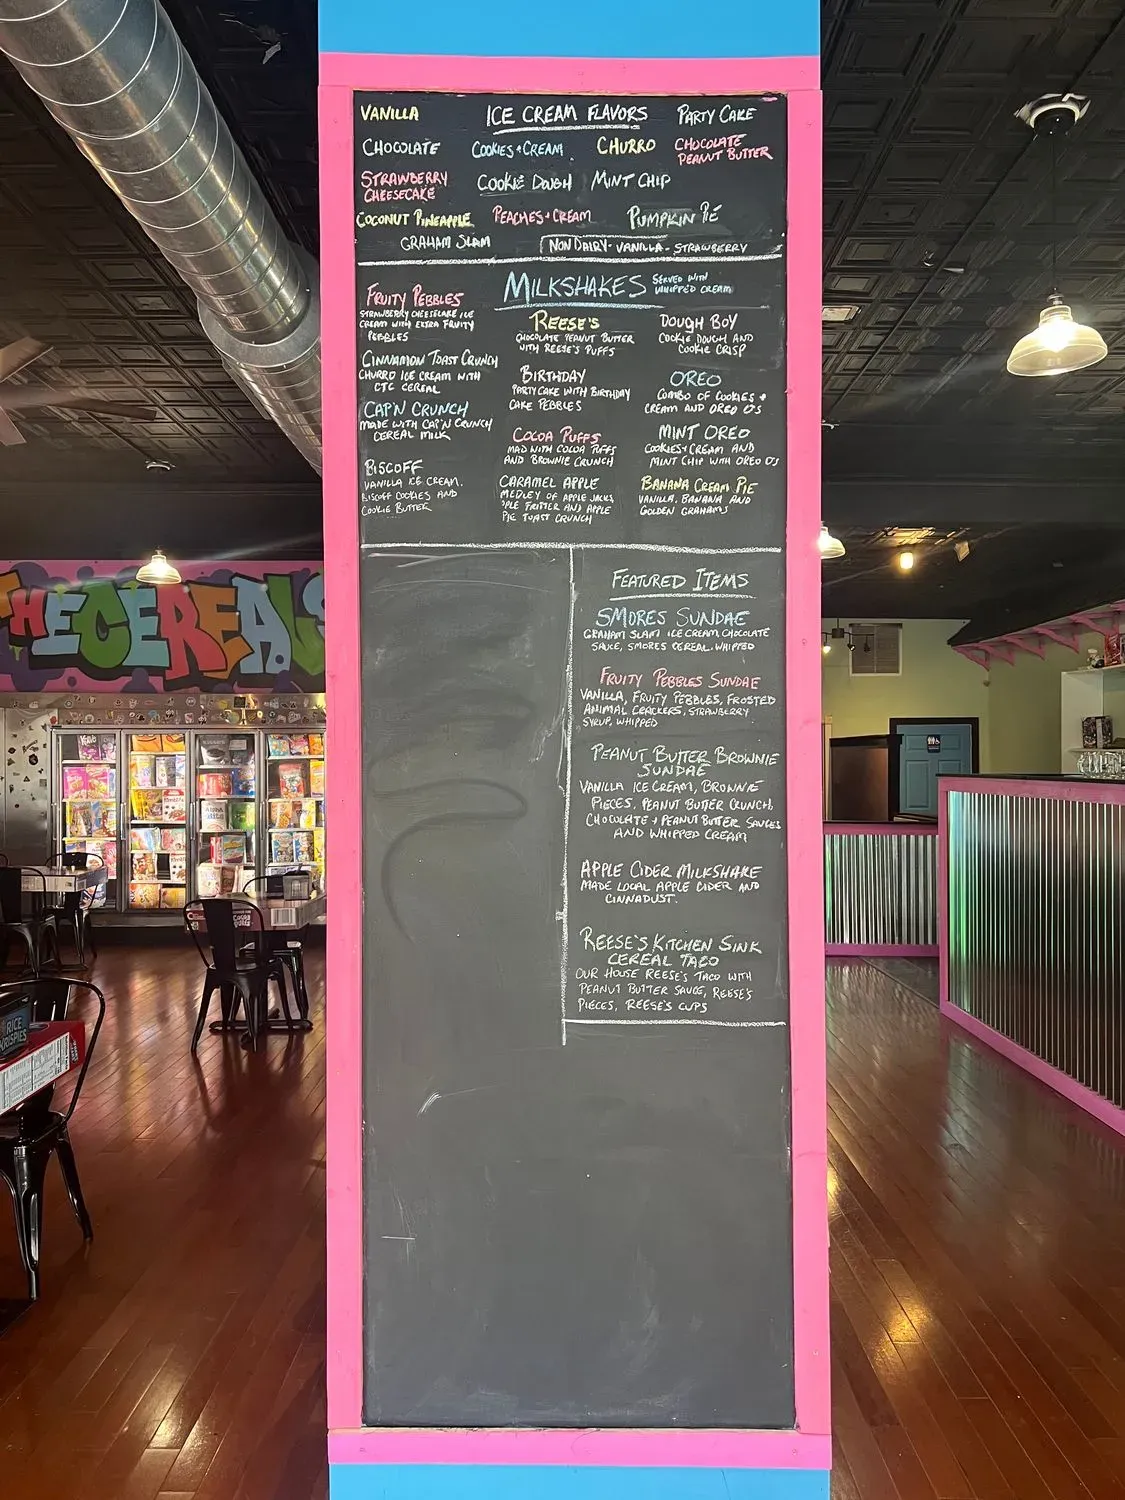 VANILLA
ICE CREAM FLAVORS
PARTY CAKE
CHOCOLATE
COOKIES + CREAM
CHURRO
CHOCOLATE
PEANUT BUTTER
STRAWBERRY
CHEESECAKE
COOKIE DOUGH
MINT CHIP
COCONUT PINEAPPLE
PEACHES + CREAM
PUMPKIN PIE
GRAHAM SLAM
NON DAIRY - VANILLA - STRAWBERRY
MILKSHAKES
SERVED WITH
WHIPPED CREAM
FRUITY PEBBLES
STRAWBERRY CHEESECAKE ICE
CREAM WITH EXTRA FRUITY
PEBBLES
CINNAMON TOAST CRUNCH
CHURRO ICE CREAM WITH
CTC CEREAL
CAP'N CRUNCH
MADE WITH CAP'N CRUNCH
CEREAL MILK
BISCOFF
VANILLA ICE CREAM,
BISCOFF COOKIES AND
COOKIE BUTTER
REESE'S
CHOCOLATE PEANUT BUTTER
WITH REESE'S PUFFS
BIRTHDAY
PARTY CAKE WITH BIRTHDAY
CAKE PEBBLES
COCOA PUFFS
MAD WITH COCOA PUFFS
AND BROWNIE CRUNCH
CARAMEL APPLE
MEDLEY OF APPLE JACKS
PLE FRITTER AND APPLE
PIE TOAST CRUNCH
DOUGH BOY
COOKIE DOUGH AND
COOKIE CRISP
OREO
COMBO OF COOKIES +
CREAM AND OREO O'S
MINT OREO
COOKIES + CREAM AND
MINT CHIP WITH OREO O'S
BANANA CREAM PIE
VANILLA, BANANA AND
GOLDEN GRAHAMS
FEATURED ITEMS
SMORES SUNDAE
GRAHAM SLAM ICE CREAM, CHOCOLATE
SAUCE, SMORES CEREAL, WHIPPED
FRUITY PEBBLES SUNDAE
VANILLA, FRUITY PEBBLES, FROSTED
ANIMAL CRACKERS, STRAWBERRY
SYRUP, WHIPPED
PEANUT BUTTER BROWNIE
SUNDAE
VANILLA ICE CREAM, BROWNIE
PIECES, PEANUT BUTTER CRUNCH,
CHOCOLATE + PEANUT BUTTER SAUCES
AND WHIPPED CREAM
APPLE CIDER MILKSHAKE
MADE LOCAL APPLE CIDER AND
CINNADUST.
REESE'S KITCHEN SINK
CEREAL TACO
OUR HOUSE REESE'S TACO WITH
PEANUT BUTTER SAUCE, REESE'S
PIECES, REESE'S CUPS
THE CEREAL
RICE
KRISPIES